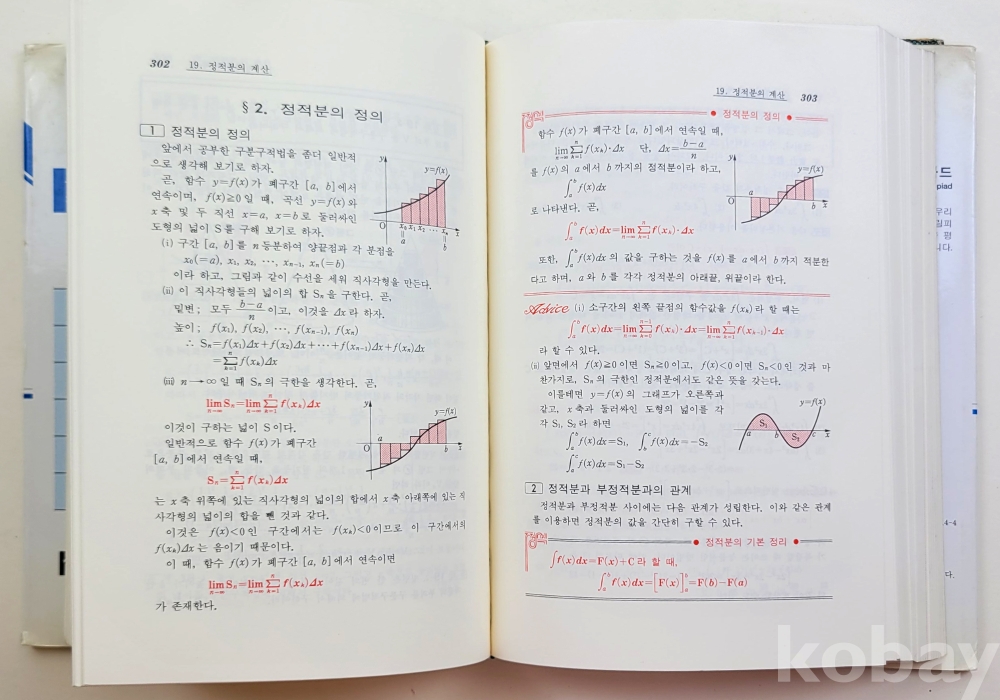 302 19. 정적분의 계산
§ 2. 정적분의 정의
1 정적분의 정의
앞에서 공부한 구분구적법을 좀더 일반적
으로 생각해 보기로 하자.
곧, 함수 y=f(x)가 폐구간 [a, b]에서
연속이며, f(x)≧0일 때, 곡선 y=f(x)와
x축 및 두 직선 x=a, x=b로 둘러싸인
도형의 넓이 S를 구해 보기로 하자.
y
y=f(x)
O
x₀ x₁ x₂ ⋯ xₙ x
a b
(i) 구간 [a, b]를 n등분하여 양끝점과 각 분점을
x₀(=a), x₁, x₂, ⋯, xₙ₋₁, xₙ(=b)
이라 하고, 그림과 같이 수선을 세워 직사각형을 만든다.
(ii) 이 직사각형들의 넓이의 합 Sₙ을 구한다. 곧,
밑변; 모두 (b−a)/n 이고, 이것을 Δx라 하자.
높이; f(x₁), f(x₂), ⋯, f(xₙ₋₁), f(xₙ)
∴ Sₙ=f(x₁)Δx+f(x₂)Δx+⋯+f(xₙ₋₁)Δx+f(xₙ)Δx
=∑ₖ₌₁ⁿ f(xₖ)Δx
(iii) n→∞일 때 Sₙ의 극한을 생각한다. 곧,
lim n→∞ Sₙ=lim n→∞ ∑ₖ₌₁ⁿ f(xₖ)Δx
이것이 구하는 넓이 S이다.
일반적으로 함수 f(x)가 폐구간
[a, b]에서 연속일 때,
Sₙ=∑ₖ₌₁ⁿ f(xₖ)Δx
y
y=f(x)
a
O b x
는 x축 위쪽에 있는 직사각형의 넓이의 합에서 x축 아래쪽에 있는 직
사각형의 넓이의 합을 뺀 것과 같다.
이것은 f(x)<0인 구간에서는 f(xₖ)<0이므로 이 구간에서의
f(xₖ)Δx는 음이기 때문이다.
이 때, 함수 f(x)가 폐구간 [a, b]에서 연속이면
lim n→∞ Sₙ=lim n→∞ ∑ₖ₌₁ⁿ f(xₖ)Δx
가 존재한다.
19. 정적분의 계산 303
정적분의 정의
함수 f(x)가 폐구간 [a, b]에서 연속일 때,
lim n→∞ ∑ₖ₌₁ⁿ f(xₖ)·Δx 단, Δx=(b−a)/n
를 f(x)의 a에서 b까지의 정적분이라 하고,
∫ₐᵇ f(x)dx
로 나타낸다. 곧,
∫ₐᵇ f(x)dx=lim n→∞ ∑ₖ₌₁ⁿ f(xₖ)·Δx
y
y=f(x)
a
O b x
또한, ∫ₐᵇ f(x)dx의 값을 구하는 것을 f(x)를 a에서 b까지 적분한
다고 하며, a와 b를 각각 정적분의 아래끝, 위끝이라 한다.
Advice (i) 소구간의 왼쪽 끝점의 함수값을 f(xₖ)라 할 때는
∫ₐᵇ f(x)dx=lim n→∞ ∑ₖ₌₀ⁿ⁻¹ f(xₖ)·Δx=lim n→∞ ∑ₖ₌₁ⁿ f(xₖ₋₁)·Δx
라 할 수 있다.
(ii) 앞면에서 f(x)≧0이면 Sₙ≧0이고, f(x)<0이면 Sₙ<0인 것과 마
찬가지로, Sₙ의 극한인 정적분에서도 같은 뜻을 갖는다.
이를테면 y=f(x)의 그래프가 오른쪽과
같고, x축과 둘러싸인 도형의 넓이를 각
각 S₁, S₂라 하면
∫ₐᵇ f(x)dx=S₁, ∫_b^c f(x)dx=−S₂
∫ₐᶜ f(x)dx=S₁−S₂
y=f(x)
S₁
a b c x
S₂
2 정적분과 부정적분과의 관계
정적분과 부정적분 사이에는 다음 관계가 성립한다. 이와 같은 관계
를 이용하면 정적분의 값을 간단히 구할 수 있다.
정적분의 기본 정리
∫f(x)dx=F(x)+C라 할 때,
∫ₐᵇ f(x)dx=[F(x)]ₐᵇ=F(b)−F(a)
드
piad
우리
길피
평
니다.
4-4
다.
kobay